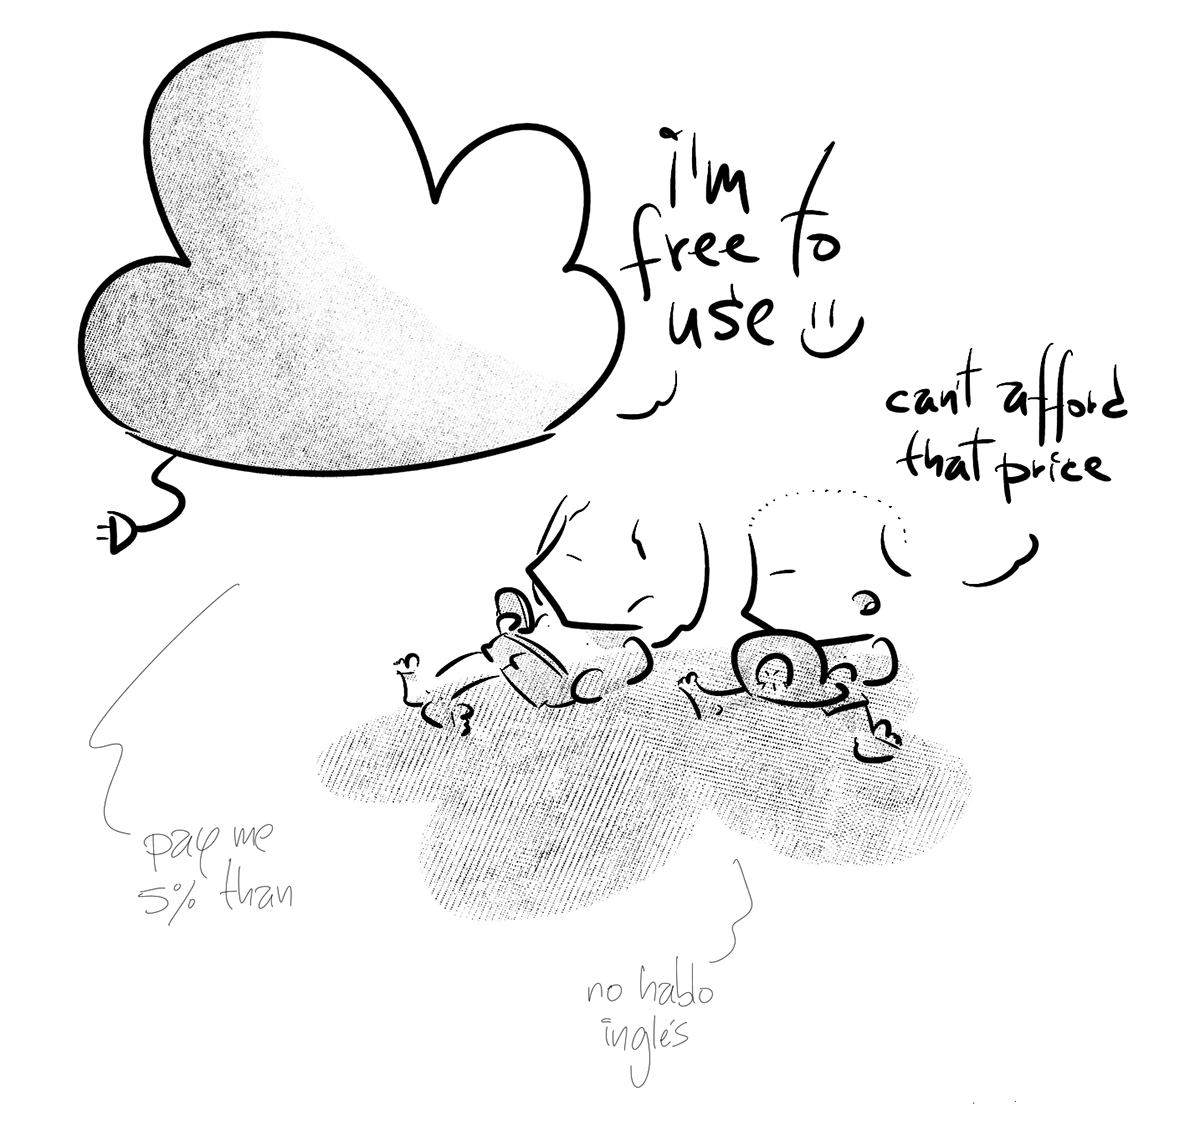 i'm
free to
use
can't afford
that price
pay me
5% than
no hablo
inglés